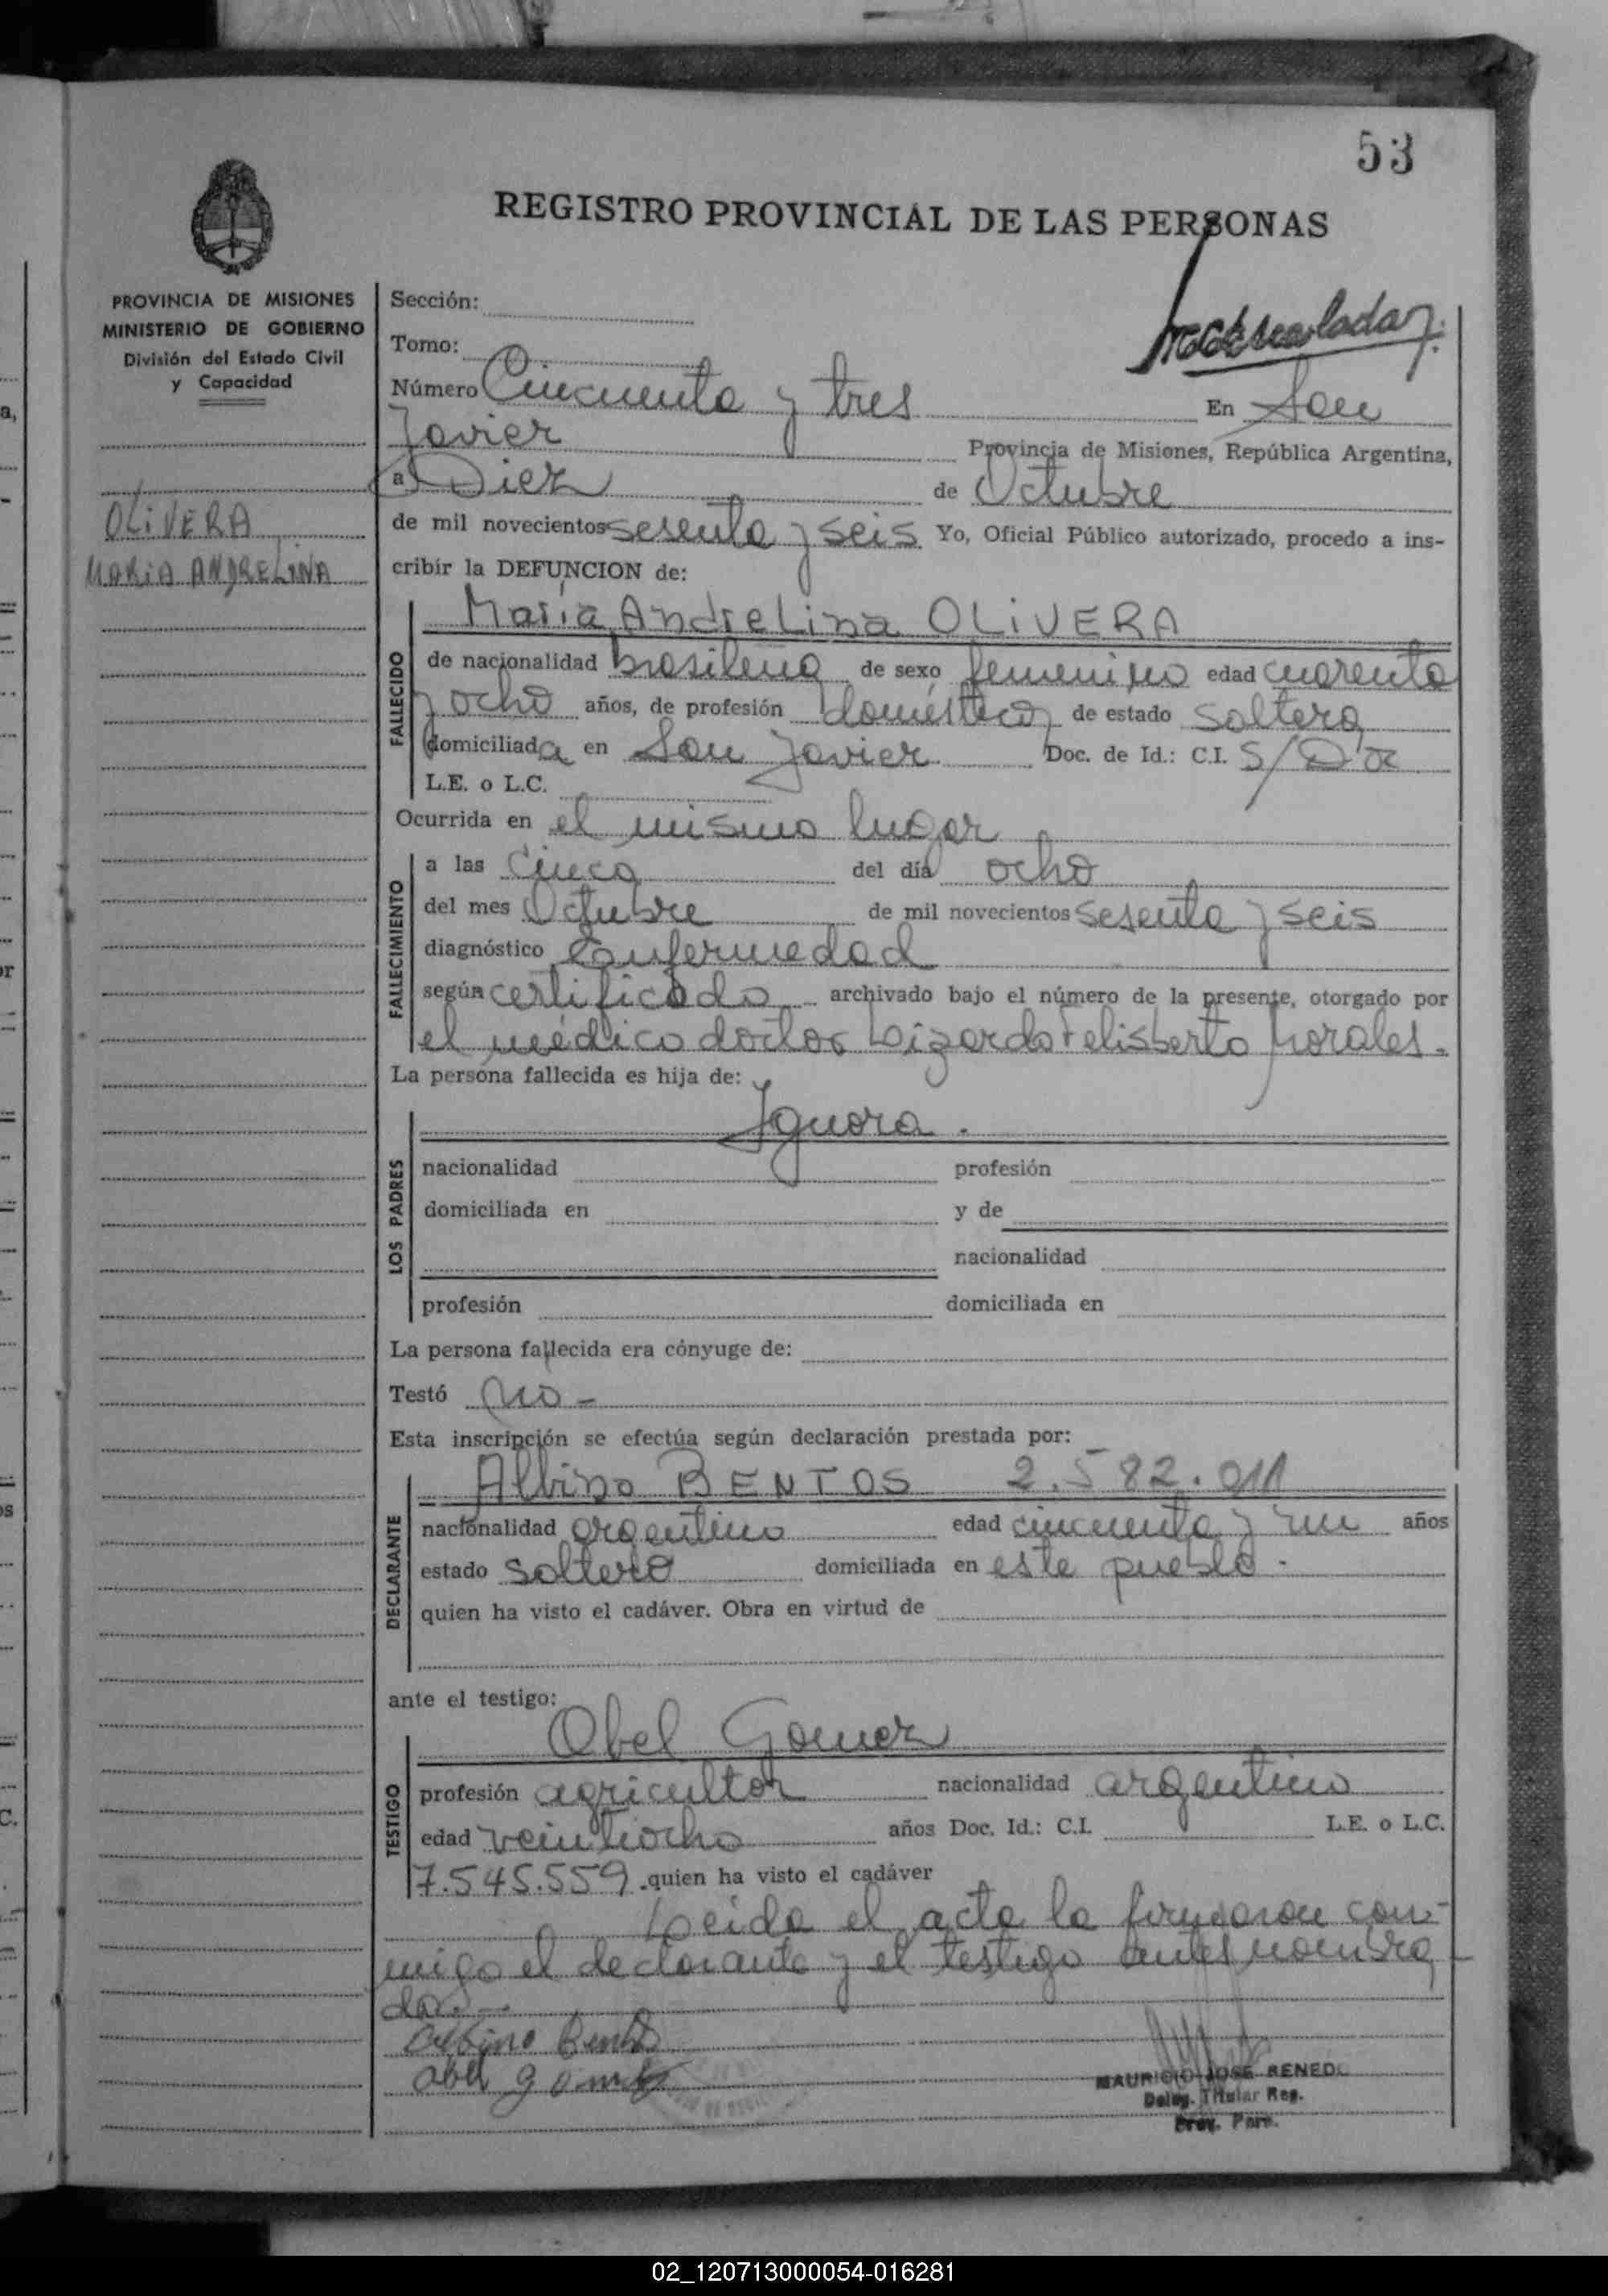 53
REGISTRO PROVINCIAL DE LAS PERSONAS
PROVINCIA DE MISIONES
MINISTERIO DE GOBIERNO
División del Estado Civil
y Capacidad
OLIVERA
MARIA ANDRELINA
Sección:
Tomo:
Número Cincuenta y tres En San
Javier Provincia de Misiones, República Argentina,
a Diez de Octubre
de mil novecientos sesenta y seis Yo, Oficial Público autorizado, procedo a ins-
cribir la DEFUNCION de:
FALLECIDO
María Andrelina OLIVERA
de nacionalidad brasilena de sexo femenino edad cuarenta
y ocho años, de profesión doméstica de estado soltera
domiciliada en San Javier Doc. de Id.: C.I. S/
L.E. o L.C.
Ocurrida en el mismo lugar
FALLECIMIENTO
a las cinco del día ocho
del mes Octubre de mil novecientos sesenta y seis
diagnóstico Enfermedad
según certificado archivado bajo el número de la presente, otorgado por
el médico doctor Lizardo Felisberto Morales.
La persona fallecida es hija de:
LOS PADRES
Ignora.
nacionalidad profesión
domiciliada en y de
nacionalidad
profesión domiciliada en
La persona fallecida era cónyuge de:
Testó No-
Esta inscripción se efectúa según declaración prestada por:
DECLARANTE
Albino BENTOS 2.582.011
nacionalidad argentino edad cincuenta y un años
estado soltero domiciliada en este pueblo.
quien ha visto el cadáver. Obra en virtud de
ante el testigo:
TESTIGO
Abel Gomez
profesión agricultor nacionalidad argentino
edad veintiocho años Doc. Id.: C.I. L.E. o L.C.
7.545.559 quien ha visto el cadáver
Leida el acta la firmaron con-
migo el declarante y el testigo antes nombra-
do.-
Albino Bentos
Abel gomez
MAURICIO JOSE RENEDO
Deleg. Titular Reg.
Prov. Pers.
02_120713000054-016281